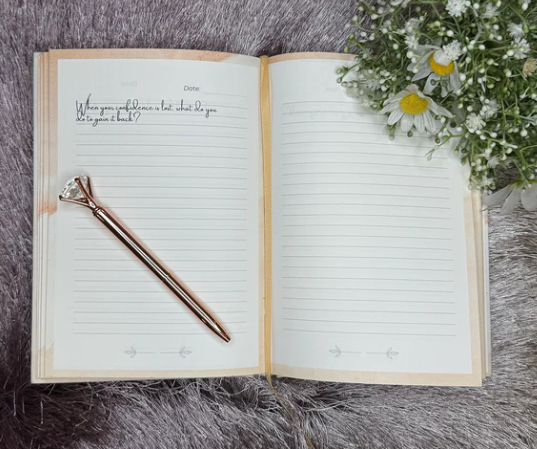 Date:
When your confidence is lost, what do you
do to gain it back?